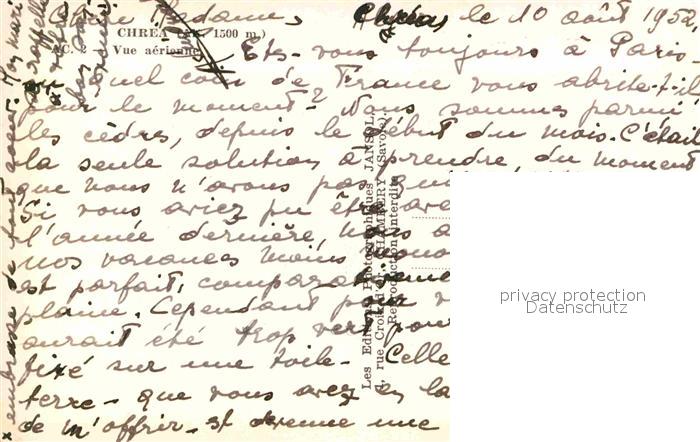 Chère Madame, Chréa, le 10 août 195
CHREA (Alt. 1500 m.)
AC. 2 - Vue aérienne
Êtes-vous toujours à Paris-
quel coin de France vous abrite-t-il
pour le moment? Nous sommes parmi
les cèdres, depuis le début du mois. C'était
la seule solution à prendre, du moment
que nous n'avons pas
Si vous aviez pu être avec
l'année dernière, nous
nos vacances moins
est parfait, comparativement
plaine. Cependant pour
aurait été trop vert pour
fixé sur une toile. Celle
terre - que vous avez eu la
de m'offrir - est devenue une
embrasse de tout cœur. Mon mari
se rappelle
Les Editions Photographiques JANSOL
rue Croix d'Or, CHAMBERY (Savoie)
Reproduction interdite
privacy protection
Datenschutz